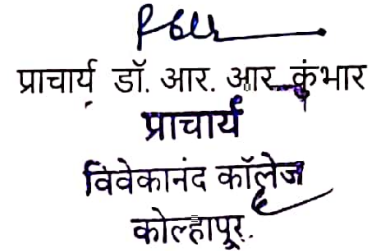 प्राचार्य डॉ. आर. आर. कुंभार
प्राचार्य
विवेकानंद कॉलेज
कोल्हापूर.